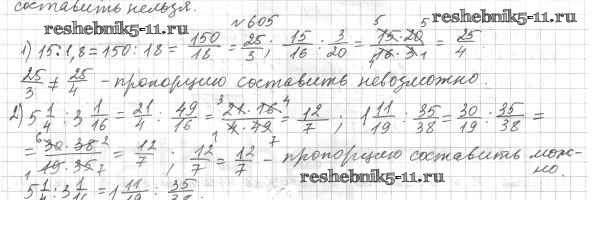 составить нельзя.
www.reshebnik5-11.ru
№605
www.reshebnik5-11.ru
1) 15:1,8=150:18= 150/16 = 25/3 ; 15/16 : 3/20 = 15·20/16·3 = 25/4.
25/3 ≠ 25/4 - пропорцию составить невозможно.
2) 5 1/4 : 3 1/16 = 21/4 : 49/16 = 21·16/4·49 = 12/7 ; 1 11/19 : 35/38 = 30/19 : 35/38 =
= 30·38/19·35 = 12/7 ; 12/7 = 12/7 - пропорцию составить можно.
5 1/4 : 3 1/16 = 1 11/19 : 35/38.
reshebnik5-11.ru